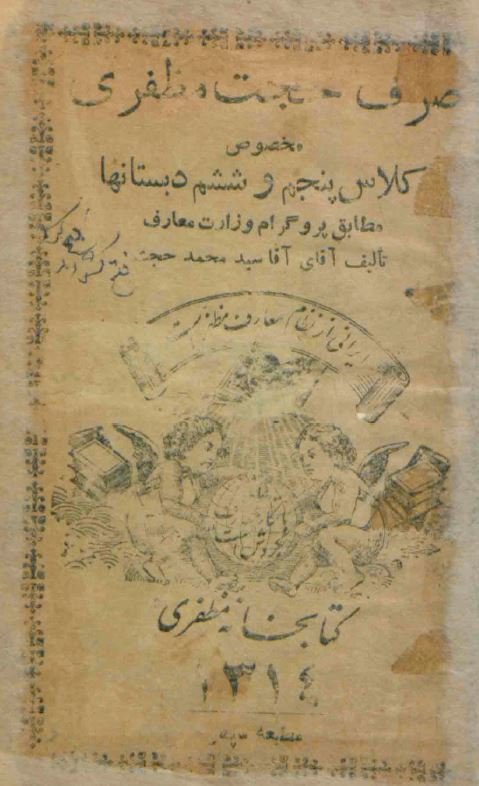 صرف حجت مظفری
مخصوص
کلاس پنجم و ششم دبستانها
مطابق پروگرام وزارت معارف
تألیف آقای آقا سید محمد حجت
ایرانی از نام معارف مظفر است
کتابخانه مظفری
۱۳۱٤
مطبعه سپهر